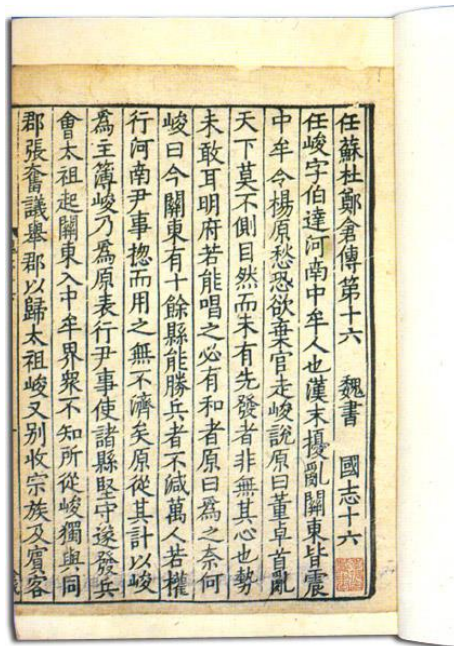 任蘇杜鄭倉傳第十六 魏書 國志十六
任峻字伯達河南中牟人也漢末擾亂關東皆震
中牟令楊原愁恐欲棄官走峻說原曰董卓首亂
天下莫不側目然而未有先發者非無其心也勢
未敢耳明府若能唱之必有和者原曰爲之奈何
峻曰今關東有十餘縣能勝兵者不減萬人若權
行河南尹事揔而用之無不濟矣原從其計以峻
爲主簿峻乃爲原表行尹事使諸縣堅守遂發兵
會太祖起關東入中牟界衆不知所從峻獨與同
郡張奮議舉郡以歸太祖峻又別收宗族及賓客